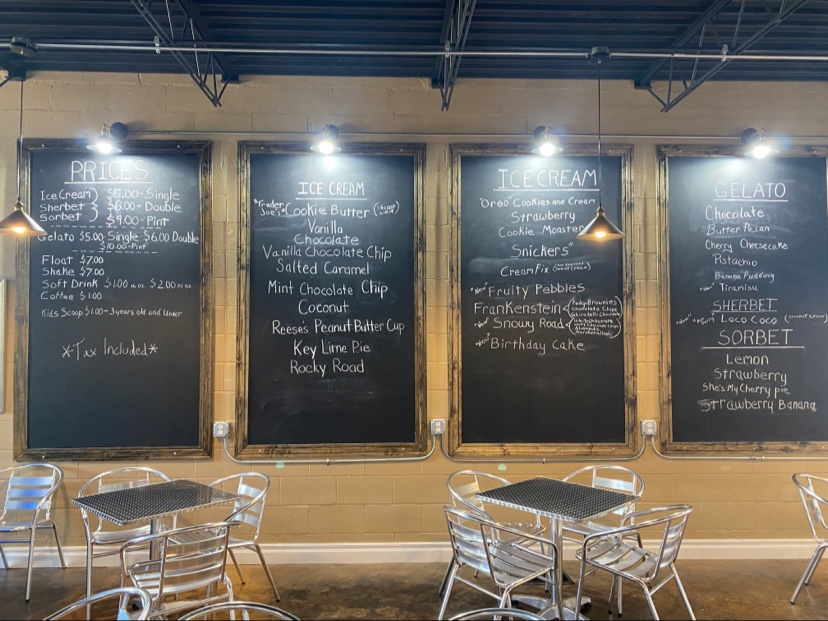 PRICES
Ice Cream
Sherbet
Sorbet
$5.00-Single
$6.00-Double
$9.00-Pint
Gelato $5.00 Single $6.00 Double
$10.00-Pint
Float $7.00
Shake $7.00
Soft Drink $1.00 $2.00
Coffee $1.00
Kids Scoop $1.00- 3years old and Under
*Tax Included*
ICE CREAM
Trader Joe's Cookie Butter
Vanilla
Chocolate
Vanilla Chocolate Chip
Salted Caramel
Mint Chocolate Chip
Coconut
Reeses Peanut Butter Cup
Key Lime Pie
Rocky Road
ICE CREAM
"Oreo" Cookies and Cream
Strawberry
Cookie Monster
Snickers"
Cream Fix
"New" Fruity Pebbles
Frankenstein
Fudge Brownies
Chocolate Chips
"New" Snowy Road
"New" Birthday Cake
GELATO
Chocolate
Butter Pecan
Cherry Cheesecake
Pistachio
Banana Pudding
"New" Tiramisu
SHERBET
"New" Loco Coco
SORBET
Lemon
Strawberry
She's My Cherry pie
Strawberry Banana